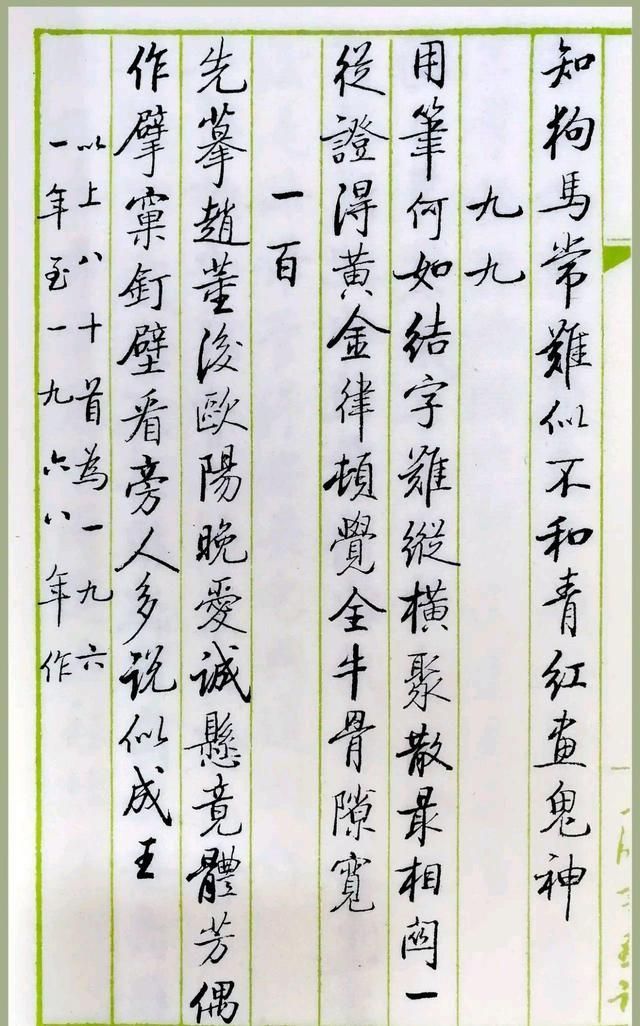 知狗馬常難似不和青紅畫鬼神
九九
用筆何如結字難縱橫聚散最相關一
從證得黃金律頓覺全牛骨隙寬
一百
先摹趙董後歐陽晚愛誠懸竟體芳偶
作擘窠釘壁看旁人多说似成王
以上八十首為一九六
一年至一九六八年作